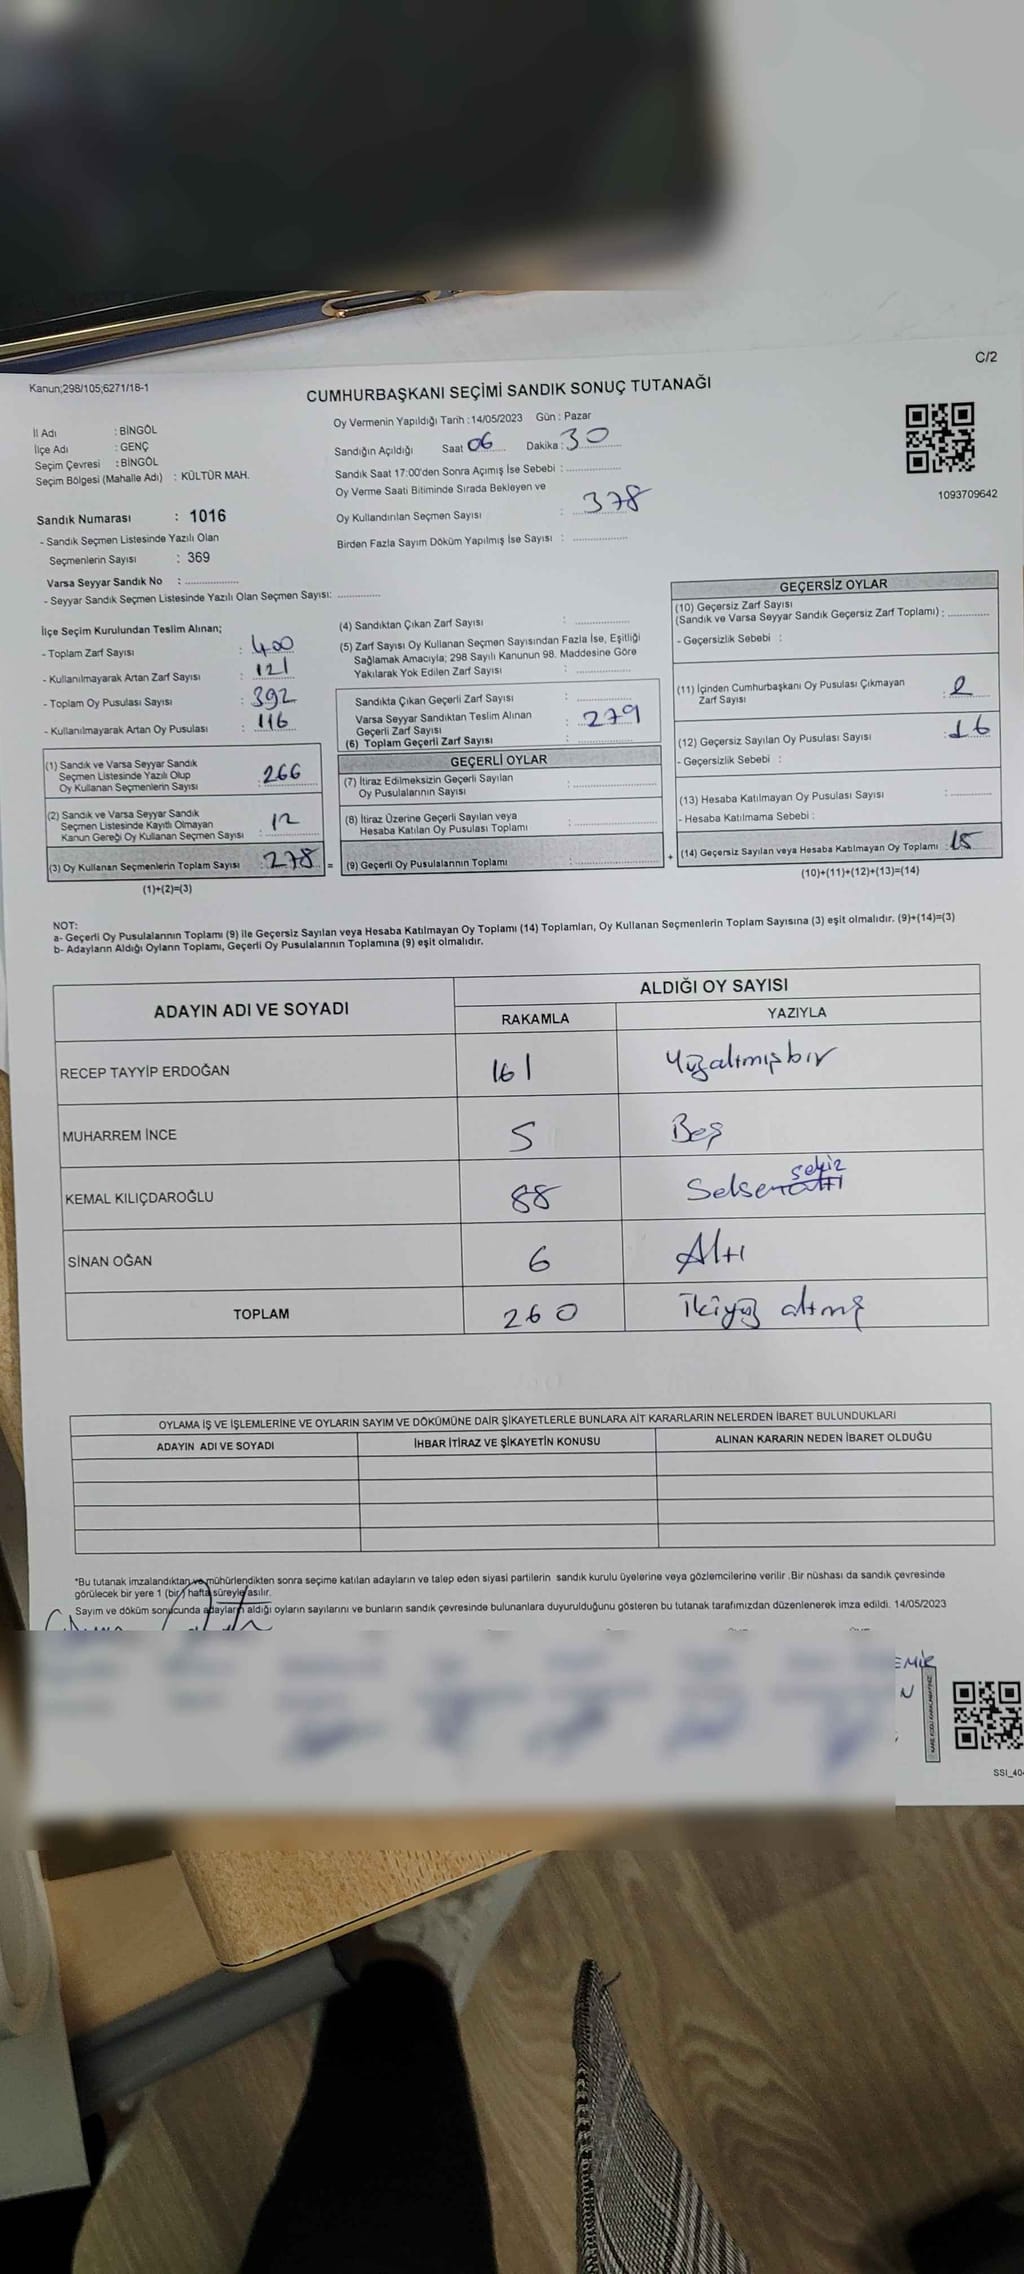 C/2
Kanun;298/105;6271/18-1
CUMHURBAŞKANI SEÇİMİ SANDIK SONUÇ TUTANAĞI
İl Adı : BİNGÖL
İlçe Adı : GENÇ
Seçim Çevresi : BİNGÖL
Seçim Bölgesi (Mahalle Adı) : KÜLTÜR MAH.
Sandık Numarası : 1016
- Sandık Seçmen Listesinde Yazılı Olan
Seçmenlerin Sayısı : 369
Varsa Seyyar Sandık No : ................
- Seyyar Sandık Seçmen Listesinde Yazılı Olan Seçmen Sayısı: .............
Oy Vermenin Yapıldığı Tarih : 14/05/2023 Gün : Pazar
Sandığın Açıldığı Saat 06 Dakika : 30
Sandık Saat 17:00'den Sonra Açımış İse Sebebi : ................
Oy Verme Saati Bitiminde Sırada Bekleyen ve
Oy Kullandırılan Seçmen Sayısı : 378
Birden Fazla Sayım Döküm Yapılmış İse Sayısı : ................
1093709642
İlçe Seçim Kurulundan Teslim Alınan;
- Toplam Zarf Sayısı : 400
- Kullanılmayarak Artan Zarf Sayısı : 121
- Toplam Oy Pusulası Sayısı : 392
- Kullanılmayarak Artan Oy Pusulası : 116
(1) Sandık ve Varsa Seyyar Sandık
Seçmen Listesinde Yazılı Olup
Oy Kullanan Seçmenlerin Sayısı : 266
(2) Sandık ve Varsa Seyyar Sandık
Seçmen Listesinde Kayıtlı Olmayan
Kanun Gereği Oy Kullanan Seçmen Sayısı : 12
(3) Oy Kullanan Seçmenlerin Toplam Sayısı : 278 =
(1)+(2)=(3)
(4) Sandıktan Çıkan Zarf Sayısı : ................
(5) Zarf Sayısı Oy Kullanan Seçmen Sayısından Fazla İse, Eşitliği
Sağlamak Amacıyla; 298 Sayılı Kanunun 98. Maddesine Göre
Yakılarak Yok Edilen Zarf Sayısı : ................
Sandıkta Çıkan Geçerli Zarf Sayısı : ................
Varsa Seyyar Sandıktan Teslim Alınan
Geçerli Zarf Sayısı : 279
(6) Toplam Geçerli Zarf Sayısı : ................
GEÇERLİ OYLAR
(7) İtiraz Edilmeksizin Geçerli Sayılan
Oy Pusulalarının Sayısı : ................
(8) İtiraz Üzerine Geçerli Sayılan veya
Hesaba Katılan Oy Pusulası Toplamı : ................
(9) Geçerli Oy Pusulalarının Toplamı : ................ +
GEÇERSİZ OYLAR
(10) Geçersiz Zarf Sayısı
(Sandık ve Varsa Seyyar Sandık Geçersiz Zarf Toplamı) : ............
- Geçersizlik Sebebi :
(11) İçinden Cumhurbaşkanı Oy Pusulası Çıkmayan
Zarf Sayısı : 2
(12) Geçersiz Sayılan Oy Pusulası Sayısı : 16
- Geçersizlik Sebebi :
(13) Hesaba Katılmayan Oy Pusulası Sayısı : ............
- Hesaba Katılmama Sebebi :
(14) Geçersiz Sayılan veya Hesaba Katılmayan Oy Toplamı : 18
(10)+(11)+(12)+(13)=(14)
NOT:
a- Geçerli Oy Pusulalarının Toplamı (9) ile Geçersiz Sayılan veya Hesaba Katılmayan Oy Toplamı (14) Toplamları, Oy Kullanan Seçmenlerin Toplam Sayısına (3) eşit olmalıdır. (9)+(14)=(3)
b- Adayların Aldığı Oyların Toplamı, Geçerli Oy Pusulalarının Toplamına (9) eşit olmalıdır.
ADAYIN ADI VE SOYADI ALDIĞI OY SAYISI
RAKAMLA YAZIYLA
RECEP TAYYİP ERDOĞAN 161 Yüzaltmışbir
MUHARREM İNCE 5 Beş
KEMAL KILIÇDAROĞLU 88 Seksenaltı sekiz
SİNAN OĞAN 6 Altı
TOPLAM 260 İkiyüz altmış
OYLAMA İŞ VE İŞLEMLERİNE VE OYLARIN SAYIM VE DÖKÜMÜNE DAİR ŞİKAYETLERLE BUNLARA AİT KARARLARIN NELERDEN İBARET BULUNDUKLARI
ADAYIN ADI VE SOYADI İHBAR İTİRAZ VE ŞİKAYETİN KONUSU ALINAN KARARIN NEDEN İBARET OLDUĞU
*Bu tutanak imzalandıktan ve mühürlendikten sonra seçime katılan adayların ve talep eden siyasi partilerin sandık kurulu üyelerine veya gözlemcilerine verilir .Bir nüshası da sandık çevresinde
görülecek bir yere 1 (bir) hafta süreyle asılır.
Sayım ve döküm sonucunda adayların aldığı oyların sayılarını ve bunların sandık çevresinde bulunanlara duyurulduğunu gösteren bu tutanak tarafımızdan düzenlenerek imza edildi. 14/05/2023
EMİR
N
SSI_40